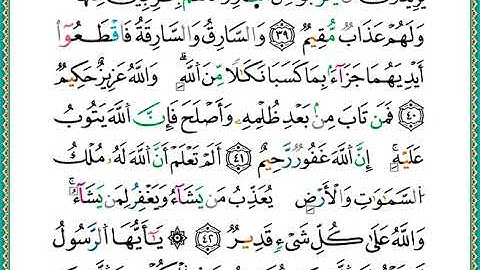 وَلَهُمْ عَذَابٌ مُّقِيمٌ ٣٩ وَالسَّارِقُ وَالسَّارِقَةُ فَاقْطَعُوٓا۟
أَيْدِيَهُمَا جَزَآءًۢ بِمَا كَسَبَا نَكَٰلًا مِّنَ اللَّهِ ۗ وَاللَّهُ عَزِيزٌ حَكِيمٌ
٤٠ فَمَن تَابَ مِنۢ بَعْدِ ظُلْمِهِۦ وَأَصْلَحَ فَإِنَّ اللَّهَ يَتُوبُ
عَلَيْهِ ۚ إِنَّ اللَّهَ غَفُورٌ رَّحِيمٌ ٤١ أَلَمْ تَعْلَمْ أَنَّ اللَّهَ لَهُۥ مُلْكُ
السَّمَٰوَٰتِ وَالْأَرْضِ ۖ يُعَذِّبُ مَن يَشَآءُ وَيَغْفِرُ لِمَن يَشَآءُ ۗ
وَاللَّهُ عَلَىٰ كُلِّ شَىْءٍ قَدِيرٌ ٤٢ ۞ يَٰٓأَيُّهَا الرَّسُولُ